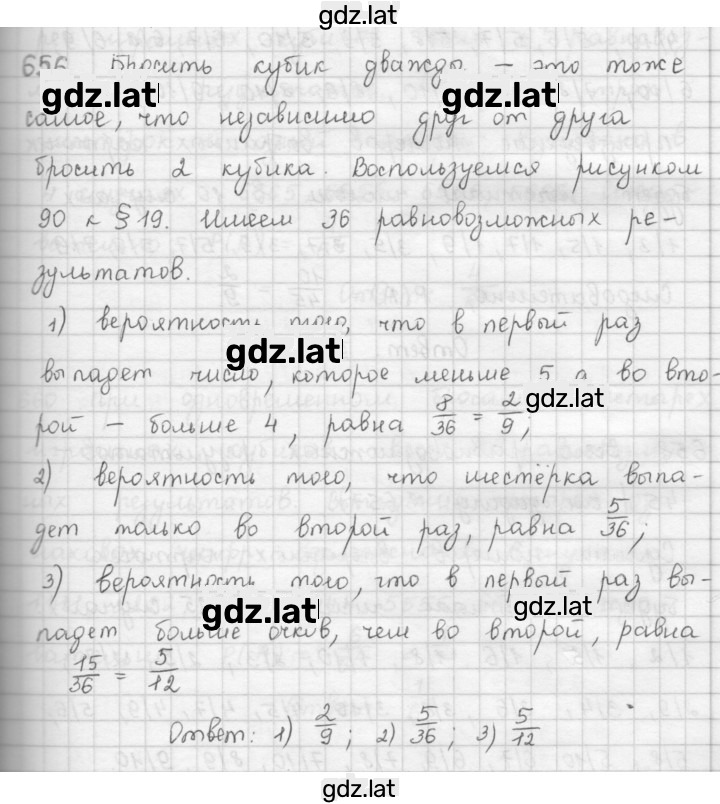 gdz.lat
656 Бросить кубик дважды – это тоже
gdz.lat gdz.lat
самое, что независимо друг от друга
бросить 2 кубика. Воспользуемся рисунком
90 к § 19. Имеем 36 равновозможных ре-
зультатов.
1) вероятность того, что в первый раз
gdz.lat
выпадет число, которое меньше 5 а во вто-
gdz.lat
рой – больше 4, равна 8/36 = 2/9;
2) вероятность того, что шестёрка выпа-
дет только во второй раз, равна 5/36;
3) вероятность того, что в первый раз вы-
gdz.lat gdz.lat
падет больше очков, чем во второй, равна
15/36 = 5/12
Ответ: 1) 2/9; 2) 5/36; 3) 5/12
gdz.lat